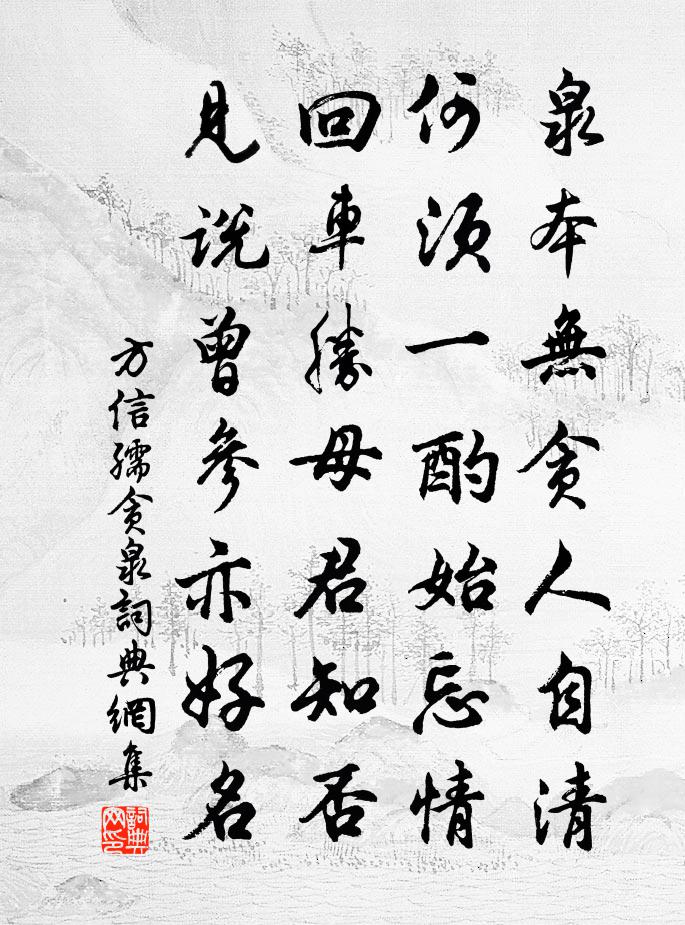 泉本無貪人自清
何須一酌始忘情
回車勝母君知否
見說曾參亦好名
方信孺貪泉詞典網集
詞典网印